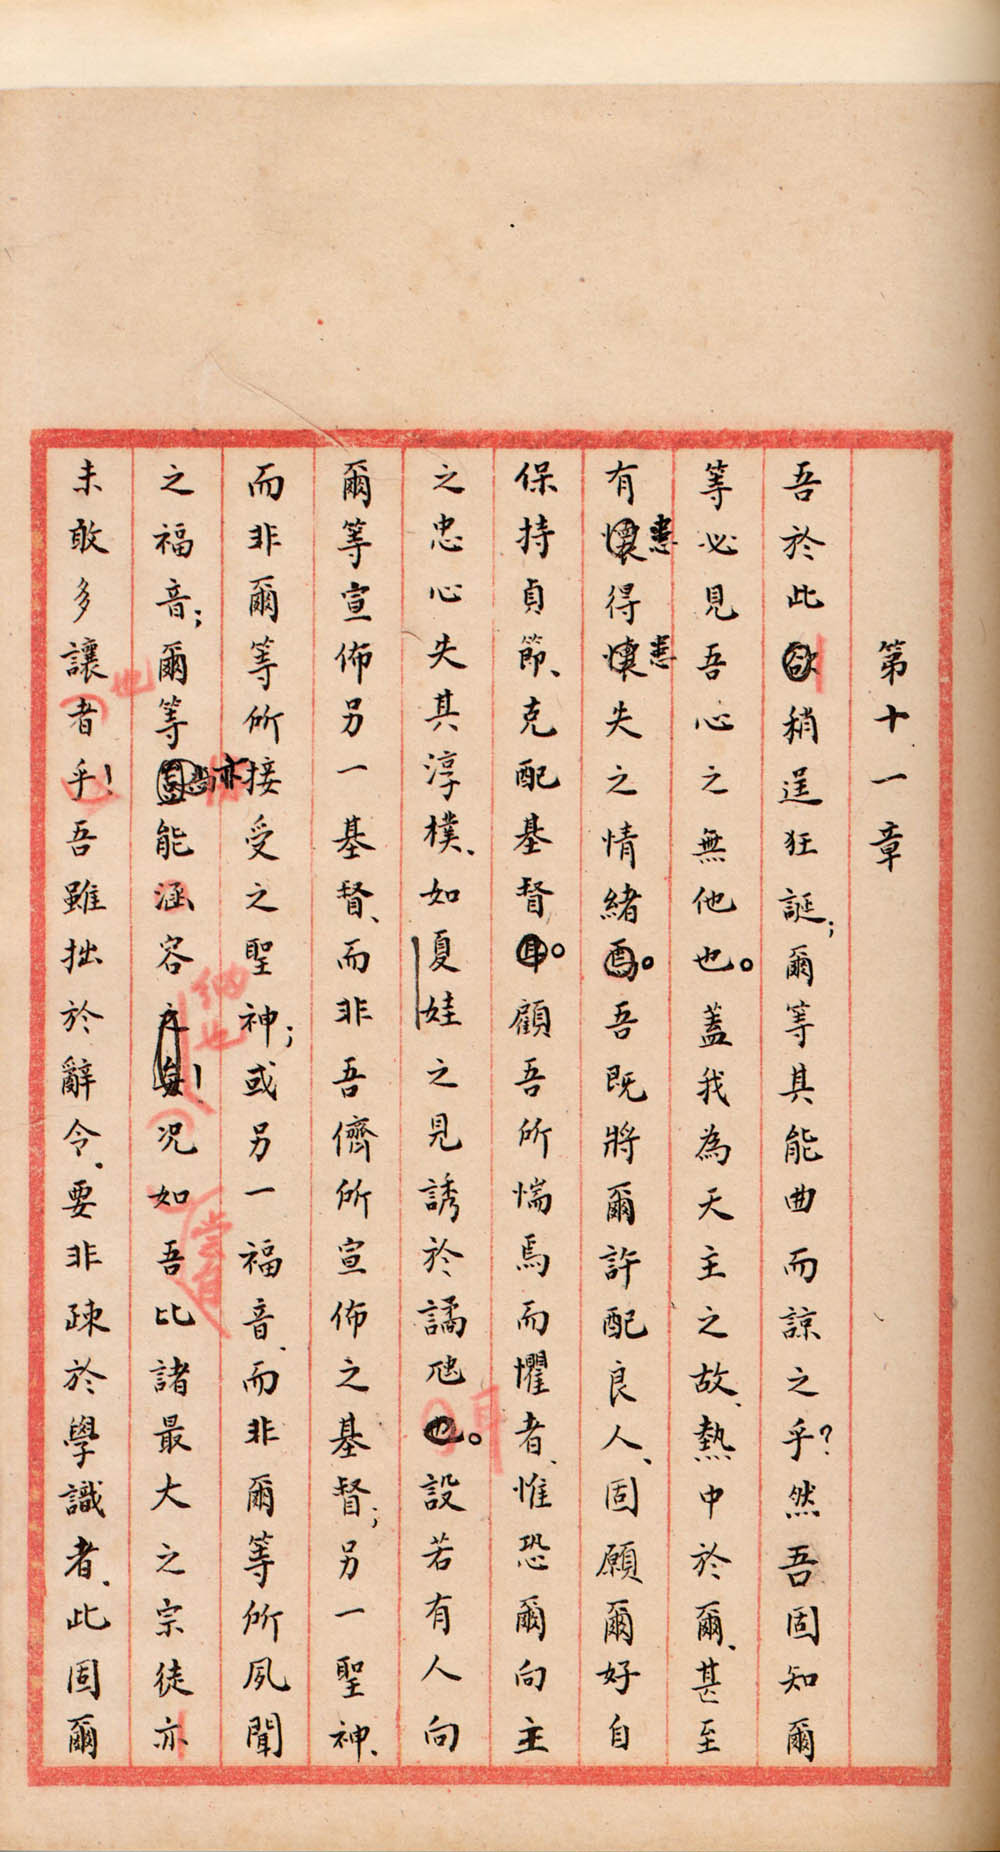 第十一章
吾於此欲稍逞狂誕;爾等其能曲而諒之乎?然吾固知爾
等必見吾心之無他也。蓋我為天主之故、熱中於爾、甚至
有懷恚得懷恚失之情緒焉。吾既將爾許配良人、固願爾好自
保持貞節、克配基督耳。顧吾所惴焉而懼者、惟恐爾向主
之忠心失其淳樸、如夏娃之見誘於譎虺也。耳設若有人向
爾等宣佈另一基督、而非吾儕所宣佈之基督;另一聖神、
而非爾等所接受之聖神;或另一福音、而非爾等所夙聞
之福音;爾等固尚亦能涵容之納也!況如吾嘗自比諸最大之宗徒亦
未敢多讓者乎!也吾雖拙於辭令、要非疎於學識者、此固爾